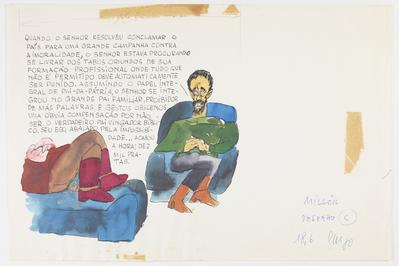 QUANDO O SENHOR RESOLVEU CONCLAMAR O
PAÍS PARA UMA GRANDE CAMPANHA CONTRA
A IMORALIDADE, O SENHOR ESTAVA PROCURANDO
SE LIVRAR DOS TABUS ORIUNDOS DE SUA
FORMAÇÃO PROFISSIONAL ONDE TUDO QUE
NÃO É PERMITIDO DEVE AUTOMATICAMENTE
SER PUNIDO. ASSUMINDO O PAPEL INTE-
GRAL DE PAI-DA-PÁTRIA, O SENHOR SE INTE-
GROU NO GRANDE PAI FAMILIAR, PROIBIDOR
DE MÁS PALAVRAS E GESTOS OBCENOS,
VIU OBVIA COMPENSAÇÃO POR NÃO
SER O VERDADEIRO PAI VINGADOR BÍBLI-
CO. SEU EGO, ABALADO PELA IMPOSSIBI-
DADE... ACABOU
A HORA; DEZ
MIL PRA-
TAS.
MILLÔR
DESENHO C
18,6 largo